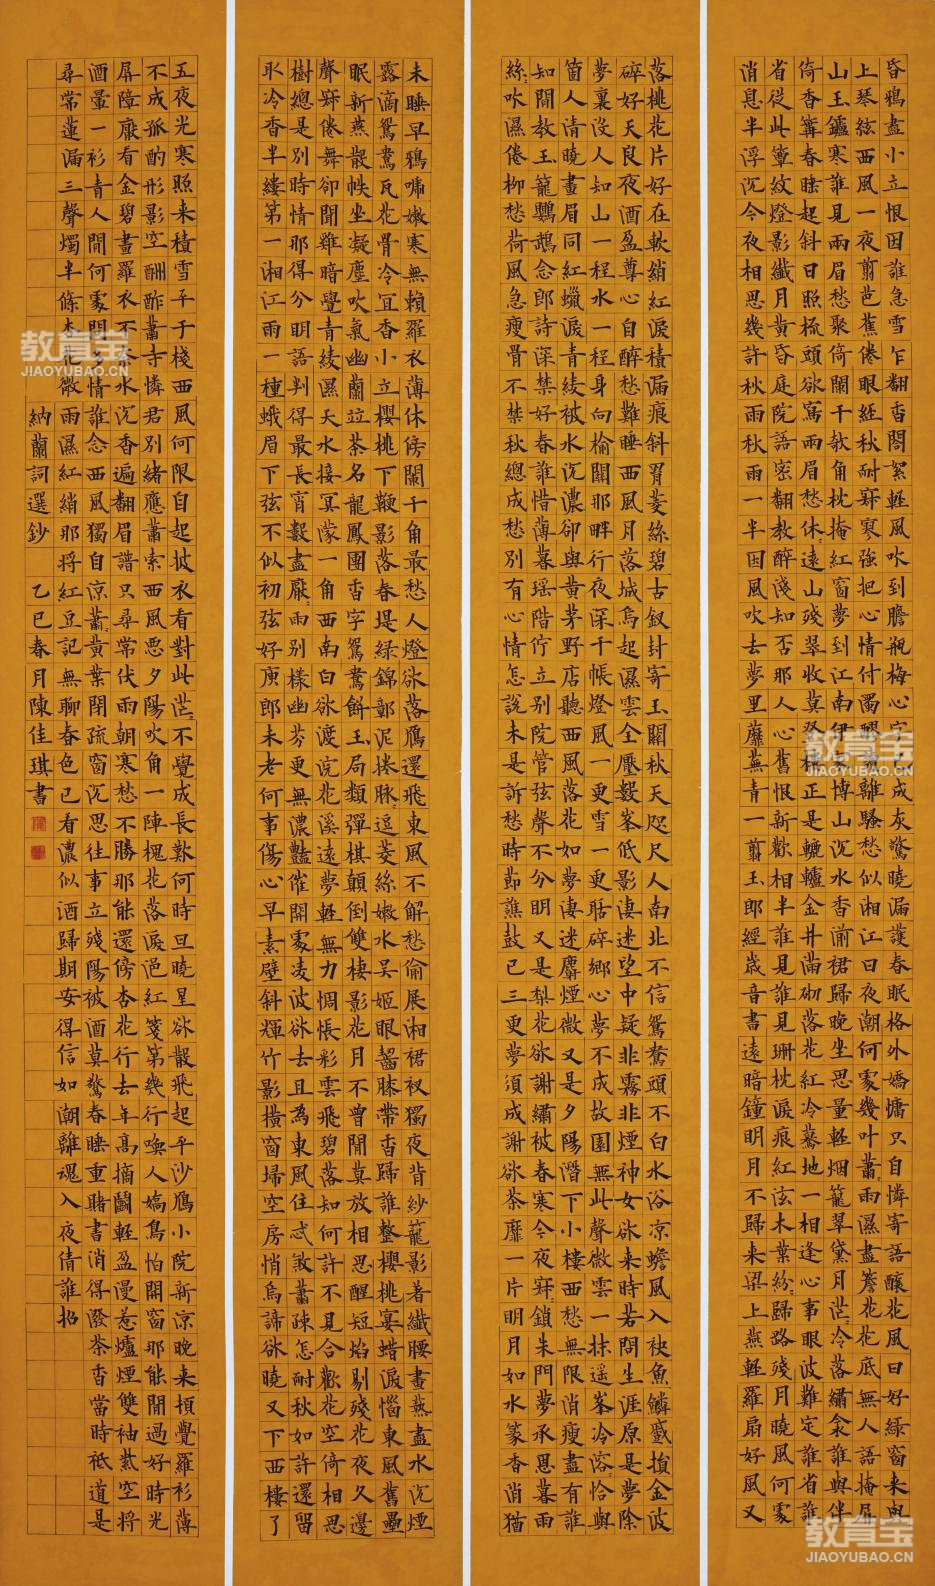 昏鴉盡小立恨因誰急雪乍翻香閣絮輕風吹到膽瓶梅心字已成灰驚曉漏護春眠格外嬌慵只自憐寄語釀花風日好綠窗來與
上琴絃西風一夜翦芭蕉倦眼經秋耐寂寥強把心情付濁醪讀離騷愁似湘江日夜潮何處幾叶蕭々雨濕盡簷花花底無人語掩屏
山玉鑪寒誰見兩眉愁聚倚闌干欹角枕掩紅窗夢到江南伊家博山沉水香湔裙歸晚坐思量輕烟籠翠黛月茫々冷落繡衾誰與伴
倚香篝春睡起斜日照梳頭欲寫兩眉愁休々遠山殘翠收莫登樓正是轆轤金井滿砌落花紅冷驀地一相逢心事眼波難定誰省誰
省從此簟紋燈影纖月黃昏庭院語密翻教醉淺知否那人心舊恨新歡相半誰見誰見珊枕淚痕紅泫木葉紛々歸路殘月曉風何處
消息半浮沉今夜相思幾許秋雨秋雨一半因風吹去夢里蘼蕪青一翦玉郎經歲音書遠暗鐘明月不歸來梁上燕輕羅扇好風又
落桃花片好在軟綃紅淚積漏痕斜罥菱絲碧古釵封寄玉關秋天咫尺人南北不信鴛鴦頭不白水浴涼蟾風入袂魚鱗蹙損金波
碎好天良夜酒盈尊心自醉愁難睡西風月落城烏起濕雲全壓數峯低影淒迷望中疑非霧非煙神女欲來時若問生涯原是夢除
夢裏沒人知山一程水一程身向榆關那畔行夜深千帳燈風一更雪一更聒碎鄉心夢不成故園無此聲微雲一抹遙峯冷溶々恰與
箇人清曉畫眉同紅蠟淚青綾被水沉濃卻與黃茅野店聽西風落花如夢淒迷麝煙微又是夕陽潛下小樓西愁無限消瘦盡有誰
知閒教玉籠鸚鵡念郎詩深禁好春誰惜薄暮瑤階佇立別院管弦聲不分明又是梨花欲謝繡被春寒今夜寂々鎖朱門夢承恩暮雨
絲々吹濕倦柳愁荷風急瘦骨不禁秋總成愁別有心情怎說未是訴愁時節譙鼓已三更夢須成謝欲荼蘼一片明月如水篆香消猶
未睡早鴉啼嫩寒無賴羅衣薄休傍闌干角最愁人燈欲落鴈還飛東風不解愁偷展湘裙衩獨夜背紗籠影著纖腰畫燕盡水沉煙
露滴鴛鴦瓦花骨冷宜香小立櫻桃下鞭影落春堤綠錦鄣泥捲脉々逗菱絲嫩水吳姬眼齧膝帶香歸誰整櫻桃宴蜡淚惱東風舊壘
眠新燕散帙坐凝塵吹氣幽蘭竝茶名龍鳳團香字鴛鴦餅玉局類彈棋顛倒雙棲影花月不曾閒莫放相思醒短焰剔殘花夜久邊
聲寂倦舞卻聞雞暗覺青綾濕天水接冥濛一角西南白欲渡浣花溪遠夢輕無力惆悵彩雲飛碧落知何許不見合歡花空倚相思
樹總是別時情那得分明語判得最長宵數盡厭々雨別樣幽芬更無濃豔催開處凌波欲去且為東風住忒煞蕭疎怎耐秋如許還留
取冷香半縷第一湘江雨一種蛾眉下弦不似初弦好庾郎未老何事傷心早素壁斜輝竹影橫窗掃空房悄烏諦欲曉又下西樓了
五夜光寒照來積雪平于棧西風何限自起披衣看對此茫々不覺成長歎何時旦曉星欲散飛起平沙鴈小院新涼晚來頓覺羅衫薄
不成孤酌形影空酬酢蕭寺憐君別緒應蕭索西風惡夕陽吹角一陣槐花落淚浥紅箋第幾行喚人嬌鳥怕開窗那能閒過好時光
屏障厭看金碧畫羅衣不奈水沉香遍翻眉譜只尋常伏雨朝寒愁不勝那能還傍杏花行去年高摘鬭輕盈漫惹爐煙雙袖紫空將
酒暈一衫青人間何處問多情誰念西風獨自涼蕭々黃葉閉疏窗沉思往事立殘陽被酒莫驚春睡重賭書消得潑茶香當時祇道是
尋常蓮漏三聲燭半條杏花微雨濕紅綃那將紅豆記無聊春色已看濃似酒歸期安得信如潮離魂入夜倩誰招
納蘭詞選鈔 乙巳春月陳佳琪書
教育宝
JIAOYUBAO.CN
教育宝
JIAOYUBAO.CN
教育宝
JIAOYUBAO.CN